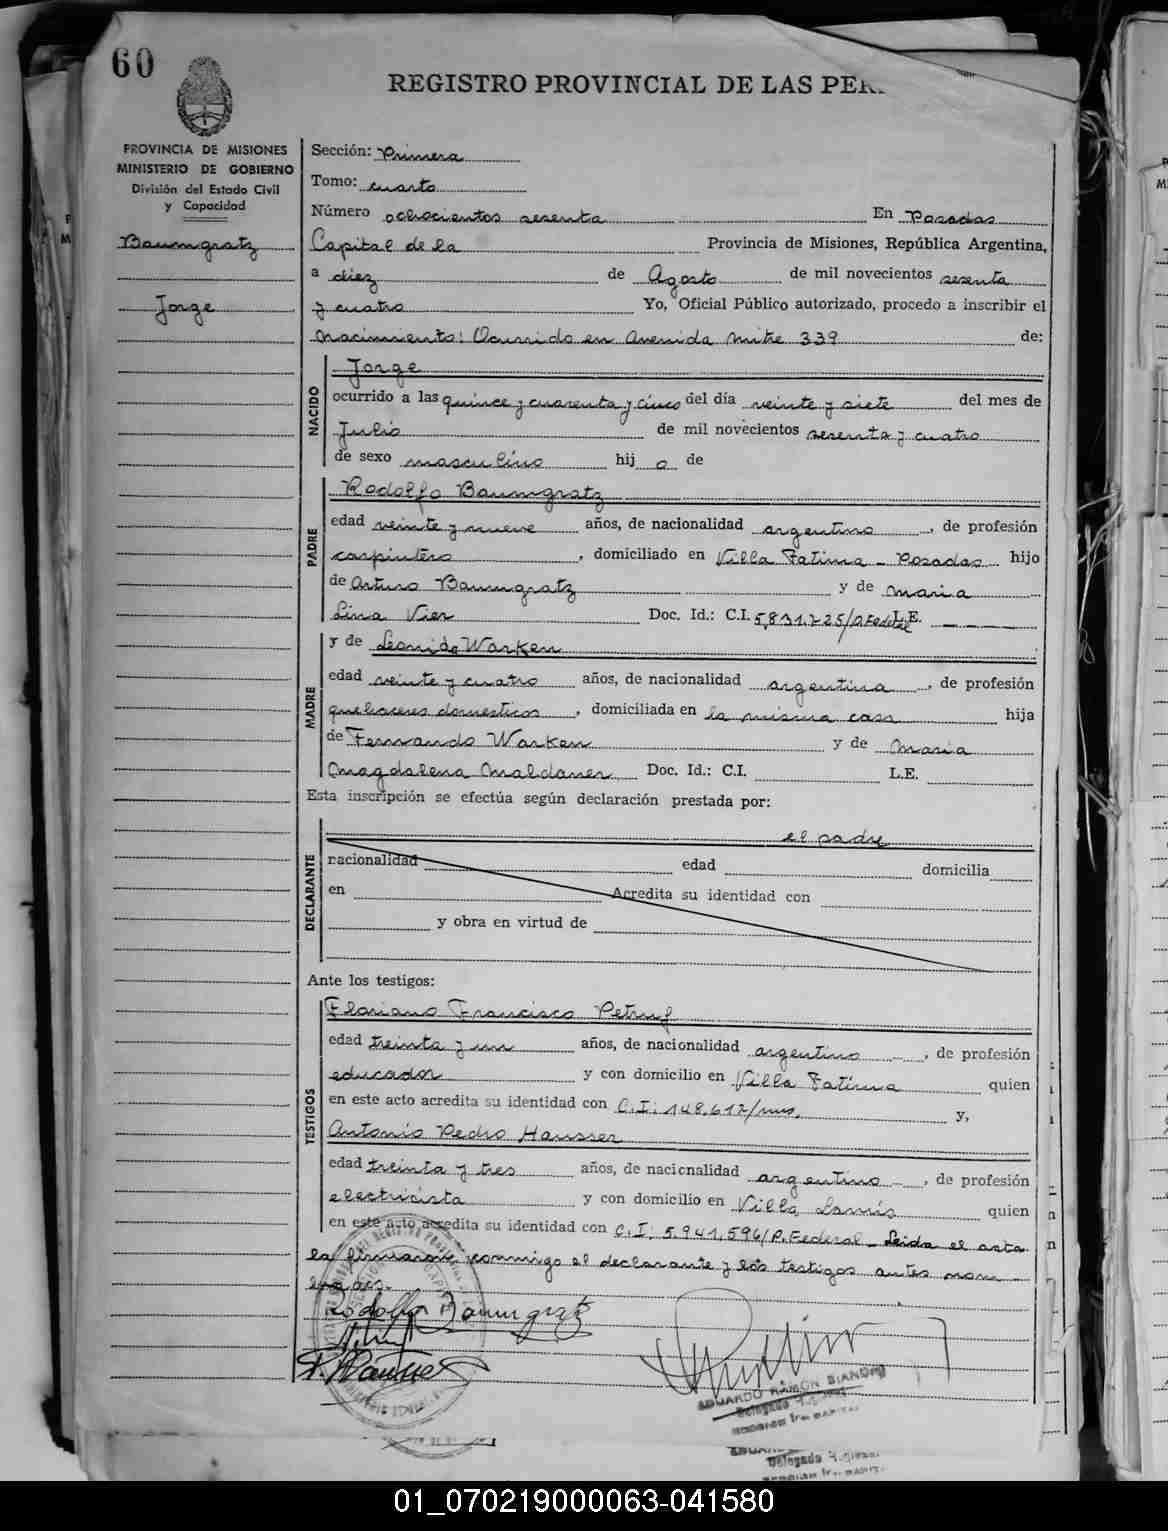 60
REGISTRO PROVINCIAL DE LAS PER
PROVINCIA DE MISIONES
MINISTERIO DE GOBIERNO
División del Estado Civil
y Capacidad
Baumgratz
Jorge
Sección: Primera
Tomo: cuarto
Número ochocientos sesenta En Posadas
Capital de la Provincia de Misiones, República Argentina,
a diez de Agosto de mil novecientos sesenta
y cuatro Yo, Oficial Público autorizado, procedo a inscribir el
nacimiento: Ocurrido en Avenida Mitre 339 de:
NACIDO
Jorge
ocurrido a las quince y cuarenta y cinco del día veinte y siete del mes de
Julio de mil novecientos sesenta y cuatro
de sexo masculino hij o de
PADRE
Rodolfo Baumgratz
edad veinte y nueve años, de nacionalidad argentino, de profesión
carpintero, domiciliado en Villa Fatima - Posadas hijo
de Arturo Baumgratz y de Maria
Lina Vier Doc. Id.: C.I. 5.831.725/P.Federal L.E.
MADRE
y de Leonida Warken
edad veinte y cuatro años, de nacionalidad argentina, de profesión
quehaceres domesticos, domiciliada en la misma casa hija
de Fernando Warken y de Maria
Magdalena Maldaner Doc. Id.: C.I. L.E.
Esta inscripción se efectúa según declaración prestada por:
DECLARANTE
el padre
nacionalidad edad domicilia
en Acredita su identidad con
y obra en virtud de
Ante los testigos:
TESTIGOS
Floriano Francisco
edad treinta y un años, de nacionalidad argentino, de profesión
educador y con domicilio en Villa Fatima quien
en este acto acredita su identidad con C.I: 148.617/mns. y,
Antonio Pedro Hausser
edad treinta y tres años, de nacionalidad argentino, de profesión
electricista y con domicilio en Villa Lanús quien
en este acto acredita su identidad con C.I: 5.941.596/P.Federal - Leida el acta
la firmaron conmigo el declarante y los testigos antes nom-
brados.
Rodolfo Baumgratz
EDUARDO RAMON
Delegado
Delegado
01_070219000063-041580